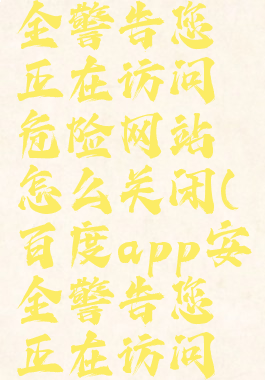 全警告您
正在访问
危险网站
怎么关闭(
百度app安
全警告您
正在访问